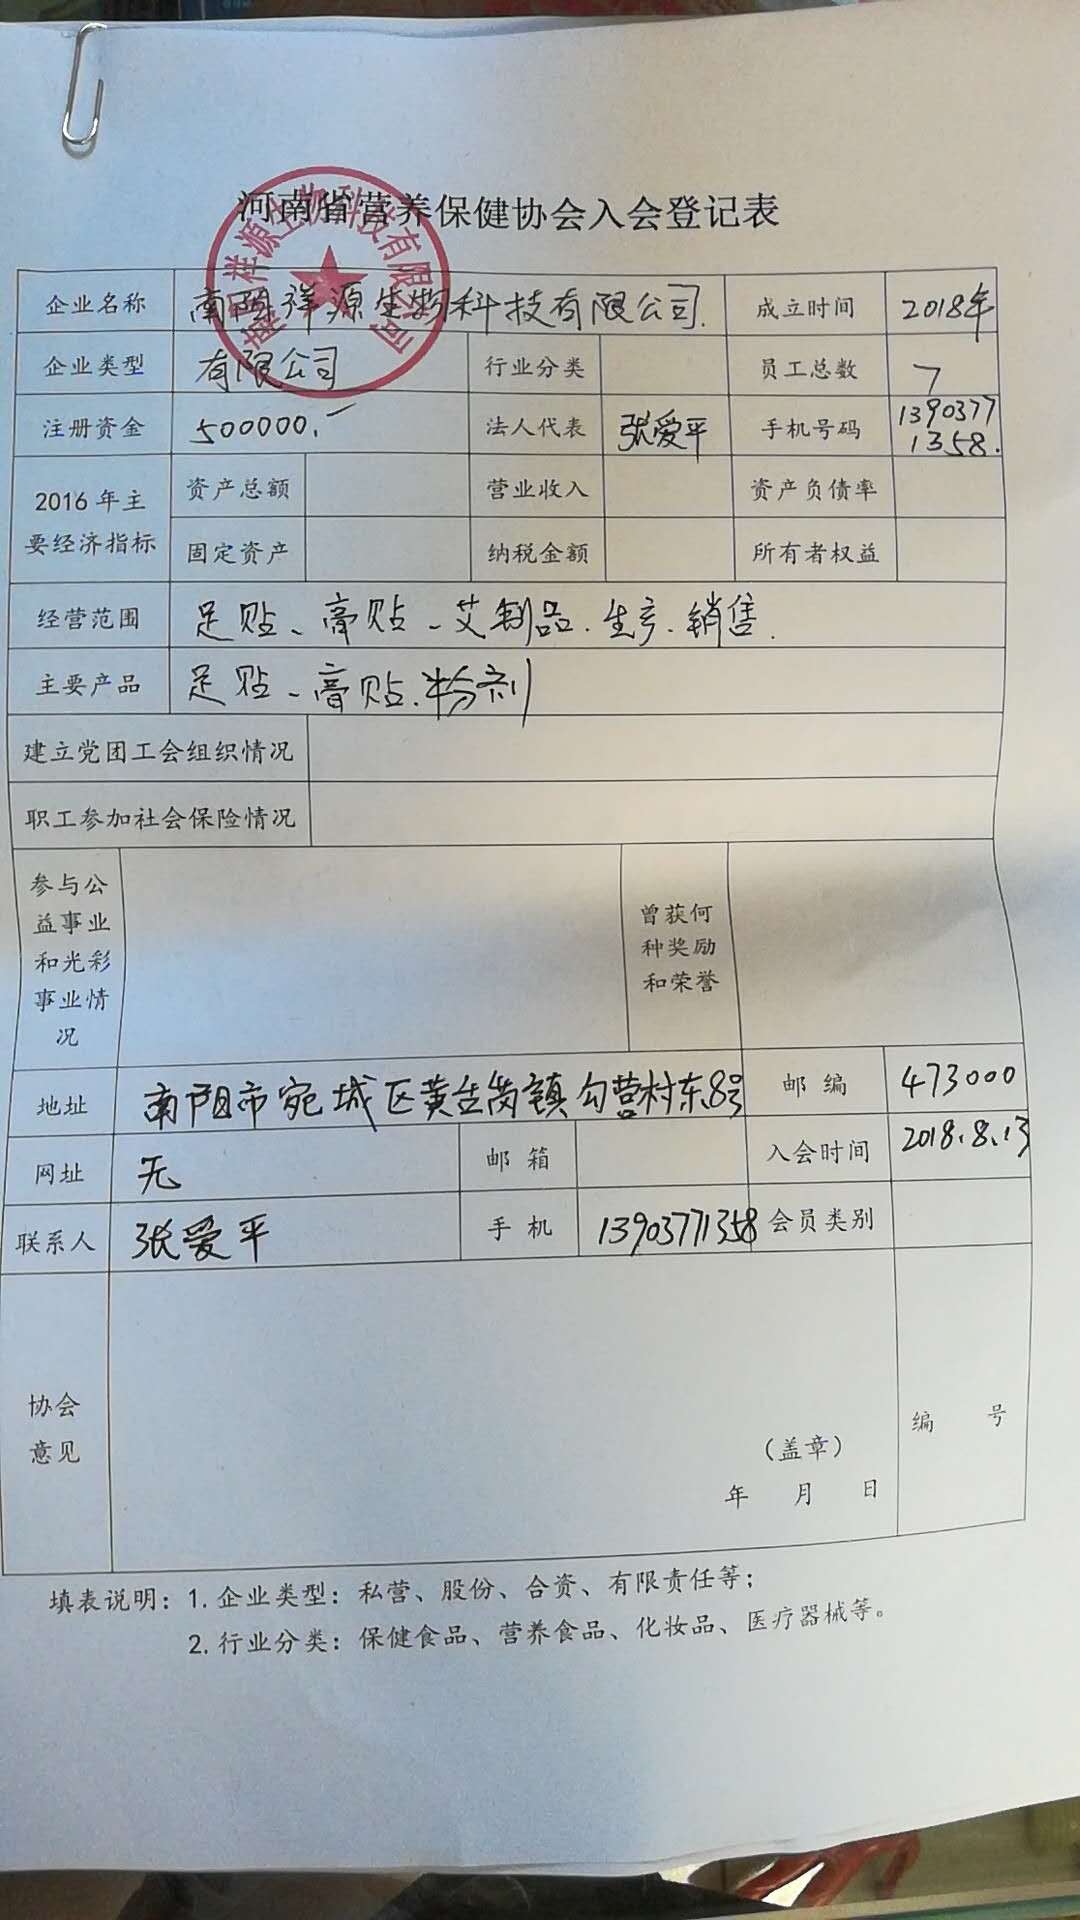 河南省营养保健协会入会登记表
企业名称 南阳祥源生物科技有限公司. 成立时间 2018年
企业类型 有限公司 行业分类 员工总数 7
注册资金 500000.一 法人代表 张爱平 手机号码 1390377
1358.
2016年主
要经济指标
资产总额 营业收入 资产负债率
固定资产 纳税金额 所有者权益
经营范围 足贴、膏贴、艾制品.生产.销售.
主要产品 足贴、膏贴.粉剂
建立党团工会组织情况
职工参加社会保险情况
参与公
益事业
和光彩
事业情
况
曾获何
种奖励
和荣誉
地址 南阳市宛城区黄台岗镇勾营村东8号 邮编 473000
网址 无 邮箱 入会时间 2018.8.13
联系人 张爱平 手机 13903771358 会员类别
协会
意见
(盖章)
年 月 日
编 号
填表说明：1.企业类型：私营、股份、合资、有限责任等；
2.行业分类：保健食品、营养食品、化妆品、医疗器械等。
南阳祥源生物科技有限公司